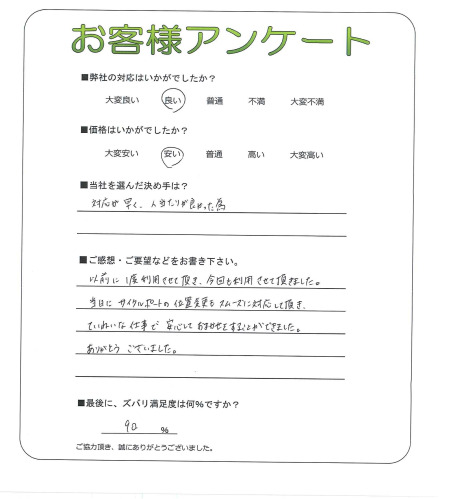 お客様アンケート
■弊社の対応はいかがでしたか？
大変良い 良い 普通 不満 大変不満
■価格はいかがでしたか？
大変安い 安い 普通 高い 大変高い
■当社を選んだ決め手は？
対応が早く、人当たりが良かった為
■ご感想・ご要望などをお書き下さい。
以前に1度利用させて頂き、今回も利用させて頂きました。
当日にサイクルポートの位置変更もスムーズに対応して頂き、
ていねいな仕事で安心しておまかせをすることができました。
ありがとうございました。
■最後に、ズバリ満足度は何%ですか？
90 %
ご協力頂き、誠にありがとうございました。